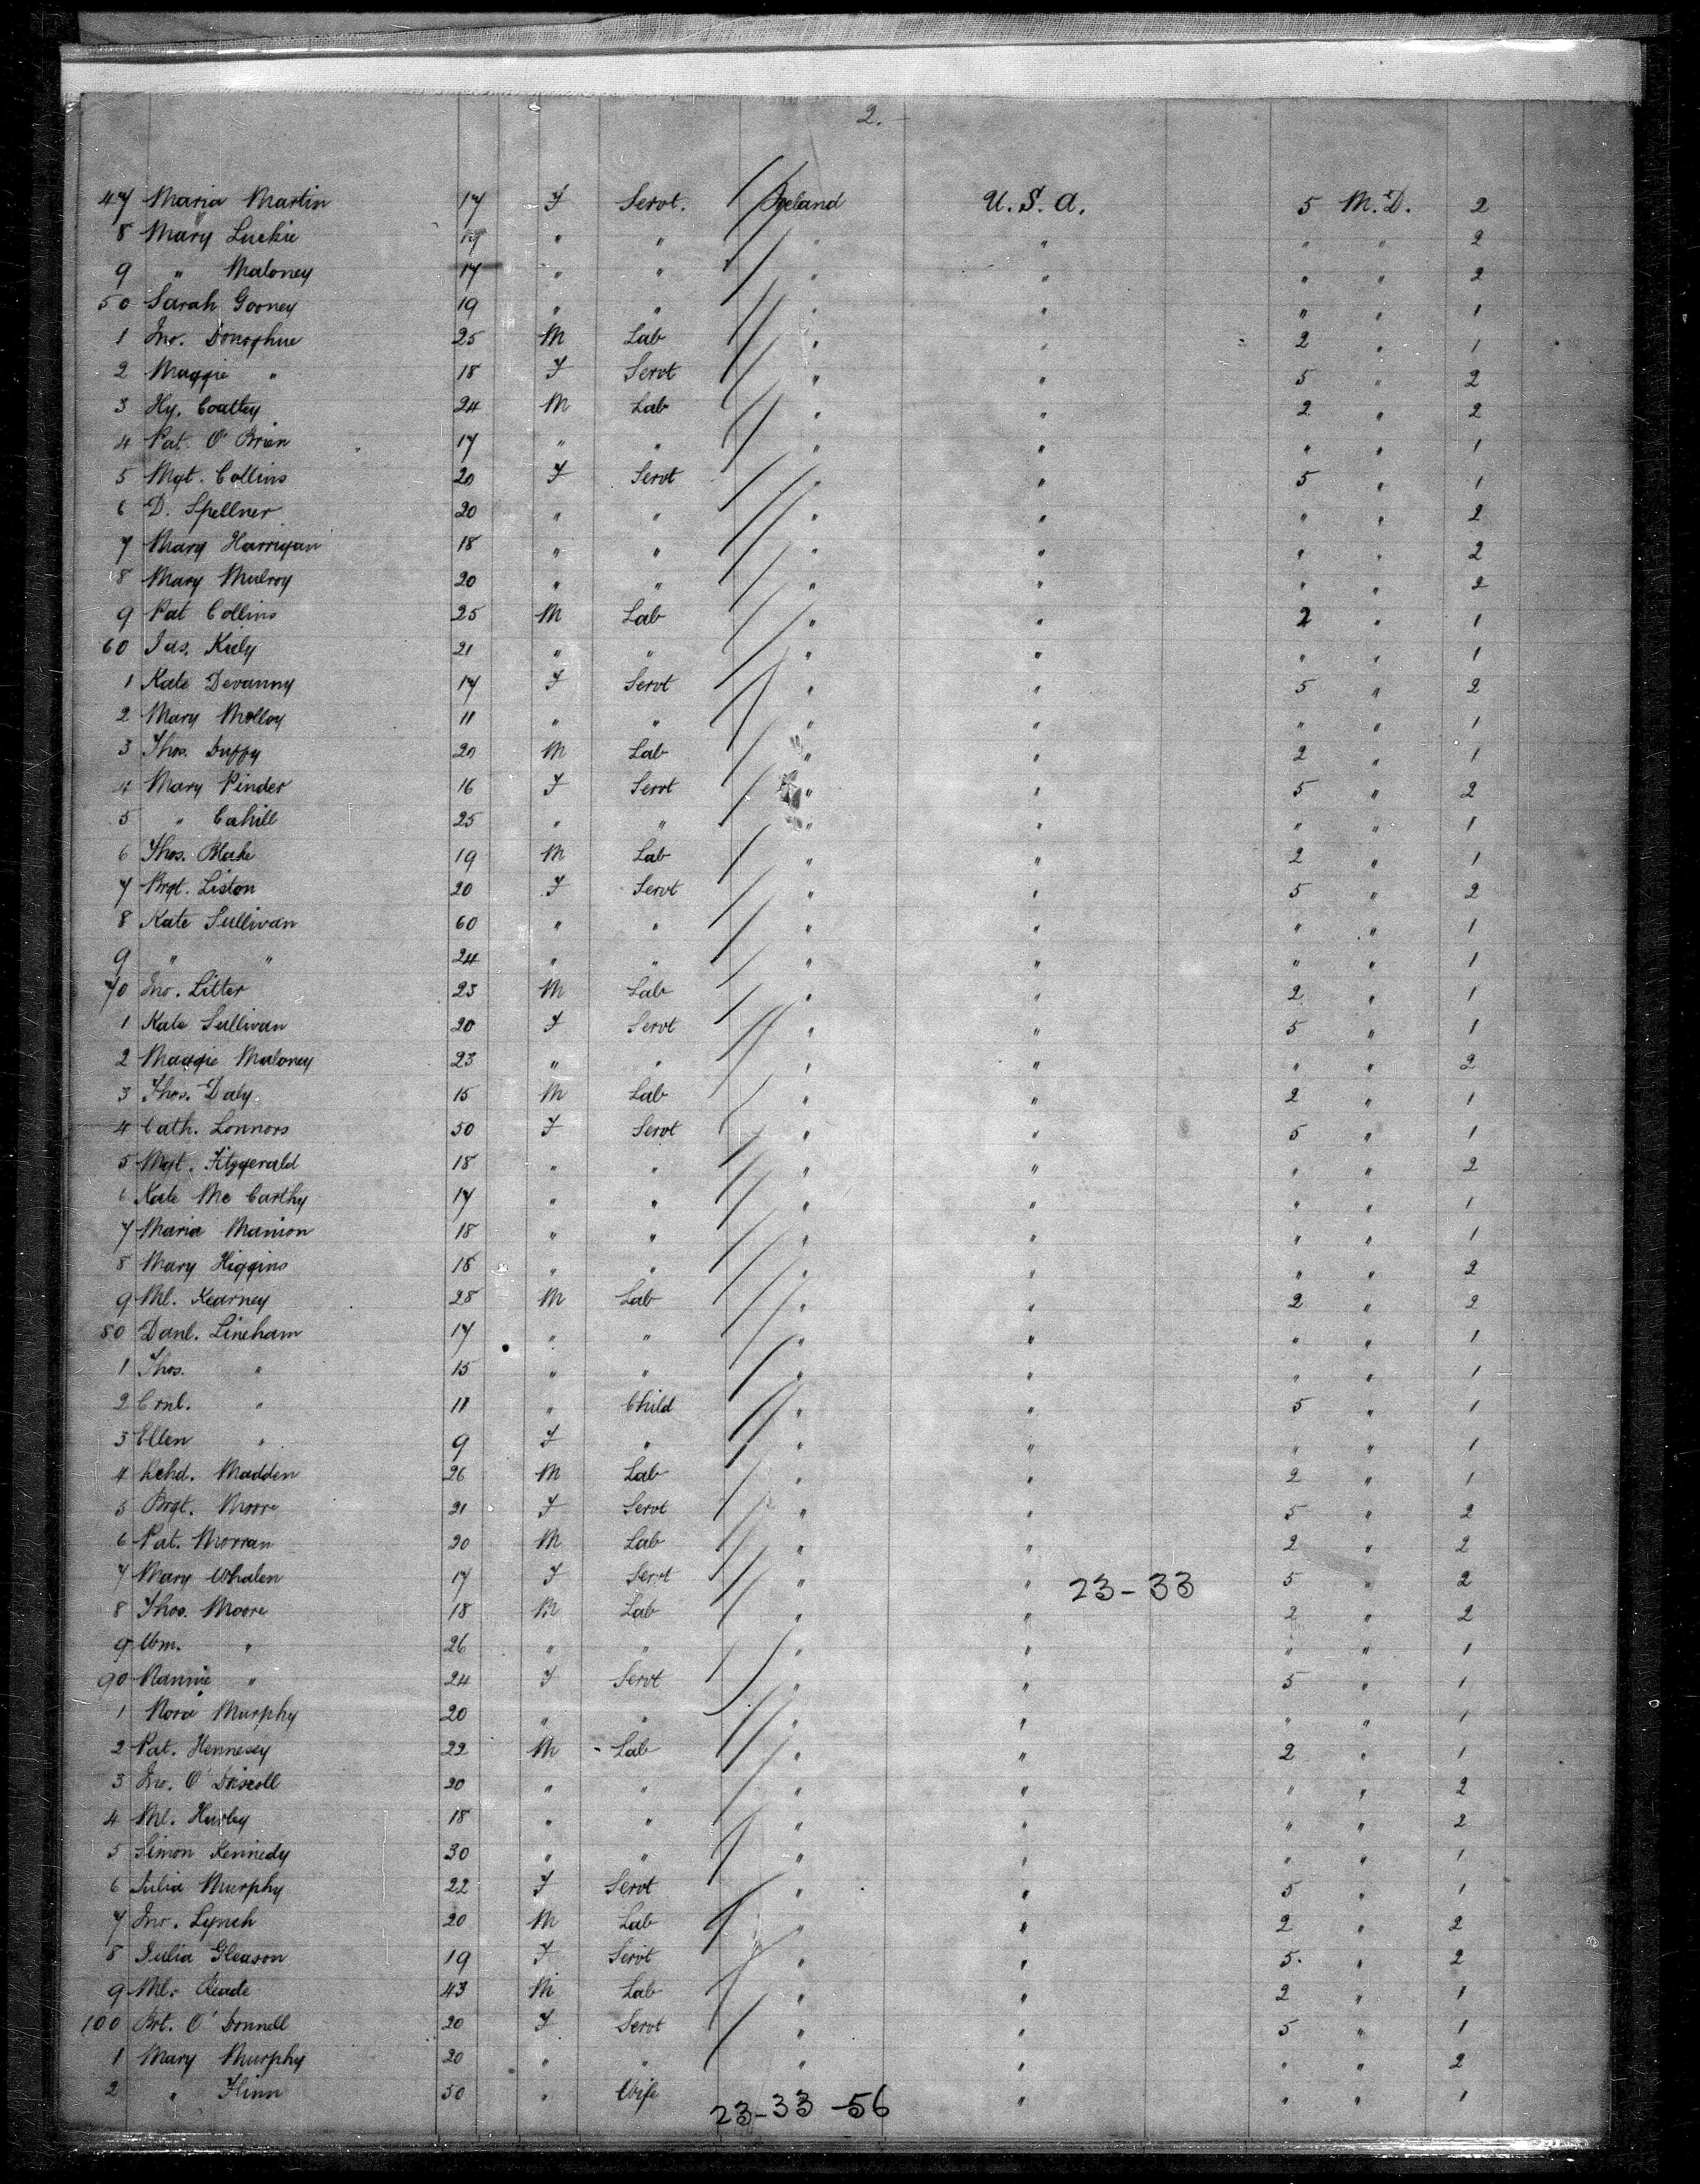 2.
47 Maria Martin 17 F Servt. Ireland U.S.A. 5 M.D. 2
8 Mary Luckie 19 " " " " " " 2
9 " Maloney 17 " " " " " " 2
50 Sarah Gooney 19 " " " " " " 1
1 Jno. Donoghue 25 M Lab " " 2 " 1
2 Maggie " 18 F Servt " " 5 " 2
3 Hy. Coatley 24 M Lab " " 2 " 2
4 Pat. O'Brien 17 " " " " " " 1
5 Mgt. Collins 20 F Servt " " 5 " 1
6 D. Spellner 20 " " " " " " 2
7 Mary Harrigan 18 " " " " " " 2
8 Mary Mulroy 20 " " " " " " 2
9 Pat Collins 25 M Lab " " 2 " 1
60 Jas. Kiely 21 " " " " " " 1
1 Kate Devanny 17 F Servt " " 5 " 2
2 Mary Molloy 11 " " " " " " 1
3 Thos. Duffy 20 M Lab " " 2 " 1
4 Mary Pinder 16 F Servt " " 5 " 2
5 " Cahill 25 " " " " " " 1
6 Thos. Blake 19 M Lab " " 2 " 1
7 Brgt. Liston 20 F Servt " " 5 " 2
8 Kate Sullivan 60 " " " " " " 1
9 " " 24 " " " " " " 1
70 Jno. Litter 23 M Lab " " 2 " 1
1 Kate Sullivan 20 F Servt " " 5 " 1
2 Maggie Maloney 23 " " " " " " 2
3 Thos. Daly 15 M Lab " " 2 " 1
4 Cath. Connors 50 F Servt " " 5 " 1
5 Mgt. Fitzgerald 18 " " " " " " 2
6 Kate Mc Carthy 17 " " " " " " 1
7 Maria Manion 18 " " " " " " 1
8 Mary Higgins 18 " " " " " " 2
9 Ml. Kearney 28 M Lab " " 2 " 2
80 Danl. Lineham 17 " " " " " " 1
1 Thos. " 15 " " " " " " 1
2 Crnl. " 11 " Child " " 5 " 1
3 Ellen " 9 F " " " " " 1
4 Rchd. Madden 26 M Lab " " 2 " 1
5 Brgt. Moore 21 F Servt " " 5 " 2
6 Pat. Morran 20 M Lab " " 2 " 2
7 Mary Whalen 17 F Servt " " 23-33 5 " 2
8 Thos. Moore 18 M Lab " " 2 " 2
9 Wm. " 26 " " " " " " 1
90 Nannie " 24 F Servt " " 5 " 1
1 Nora Murphy 20 " " " " " " 1
2 Pat. Hennesey 22 M Lab " " 2 " 1
3 Jno. O'Driscoll 20 " " " " " " 2
4 Ml. Hurley 18 " " " " " " 2
5 Simon Kennedy 30 " " " " " " 1
6 Julia Murphy 22 F Servt " " 5 " 1
7 Jno. Lynch 20 M Lab " " 2 " 2
8 Julia Gleason 19 F Servt " " 5 " 2
9 Ml. Reade 43 M Lab " " 2 " 1
100 Brt. O'Donnell 20 F Servt " " 5 " 1
1 Mary Murphy 20 " " " " " " 2
2 " Flinn 50 " Wife " " " 1
23-33-56